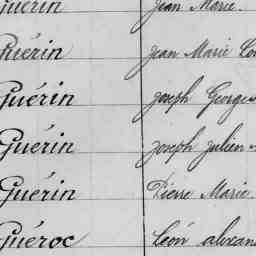 Guérin Jean Marie.
Guérin Jean Marie
Guérin Joseph Georges
Guérin Joseph Julien
Guérin Pierre Marie.
Guéroc Léon alexan